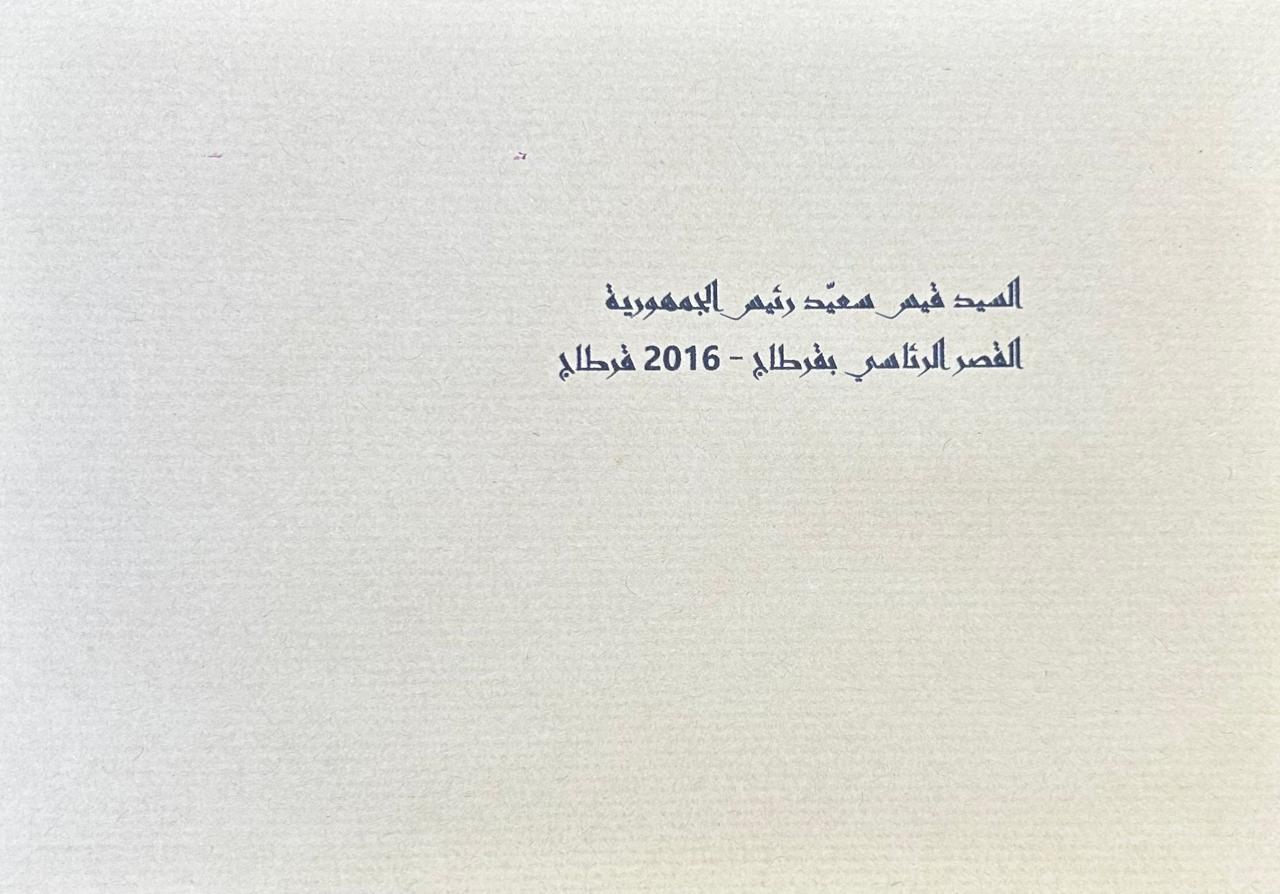 السيد قيس سعيّد رئيس الجمهورية
القصر الرئاسي بقرطاج - 2016 قرطاج